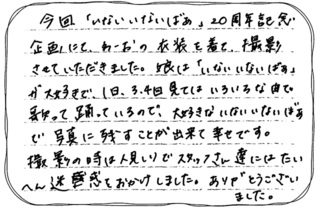 今回「いないいないばぁ」20周年記念
企画にて、わこおの衣装を着て、撮影
させていただきました。娘は「いないいないばぁ」
が大好きで、1日、3、4回見てはいろいろな曲で
歌って踊っているので、大好きないないいないばぁ
で写真に残すことが出来て幸せです。
撮影の時は人見しりでスタッフさん達にはたい
へん迷惑をおかけしました。ありがとうござい
ました。